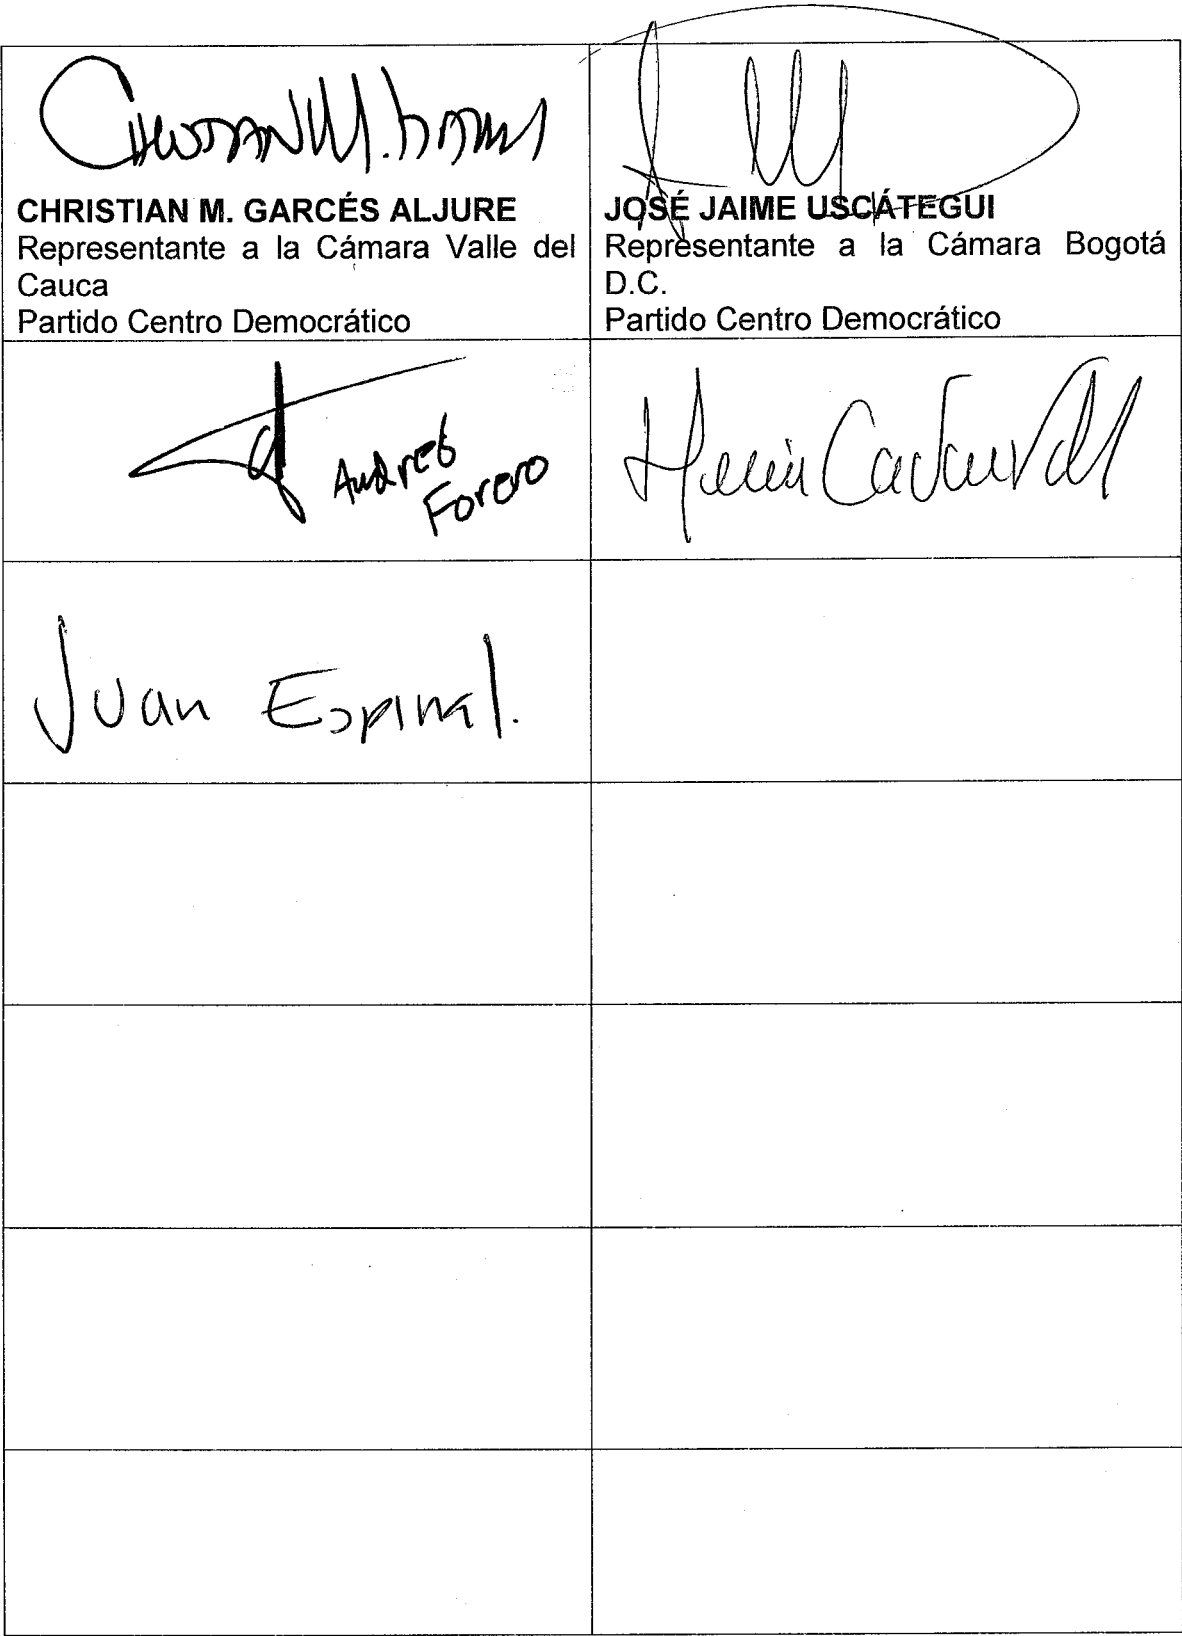 CHRISTIAN M. GARCÉS ALJURE
Representante a la Cámara Valle del
Cauca
Partido Centro Democrático
JOSÉ JAIME USCÁTEGUI
Representante a la Cámara Bogotá
D.C.
Partido Centro Democrático
Andres
Forero
Juan Espinal.